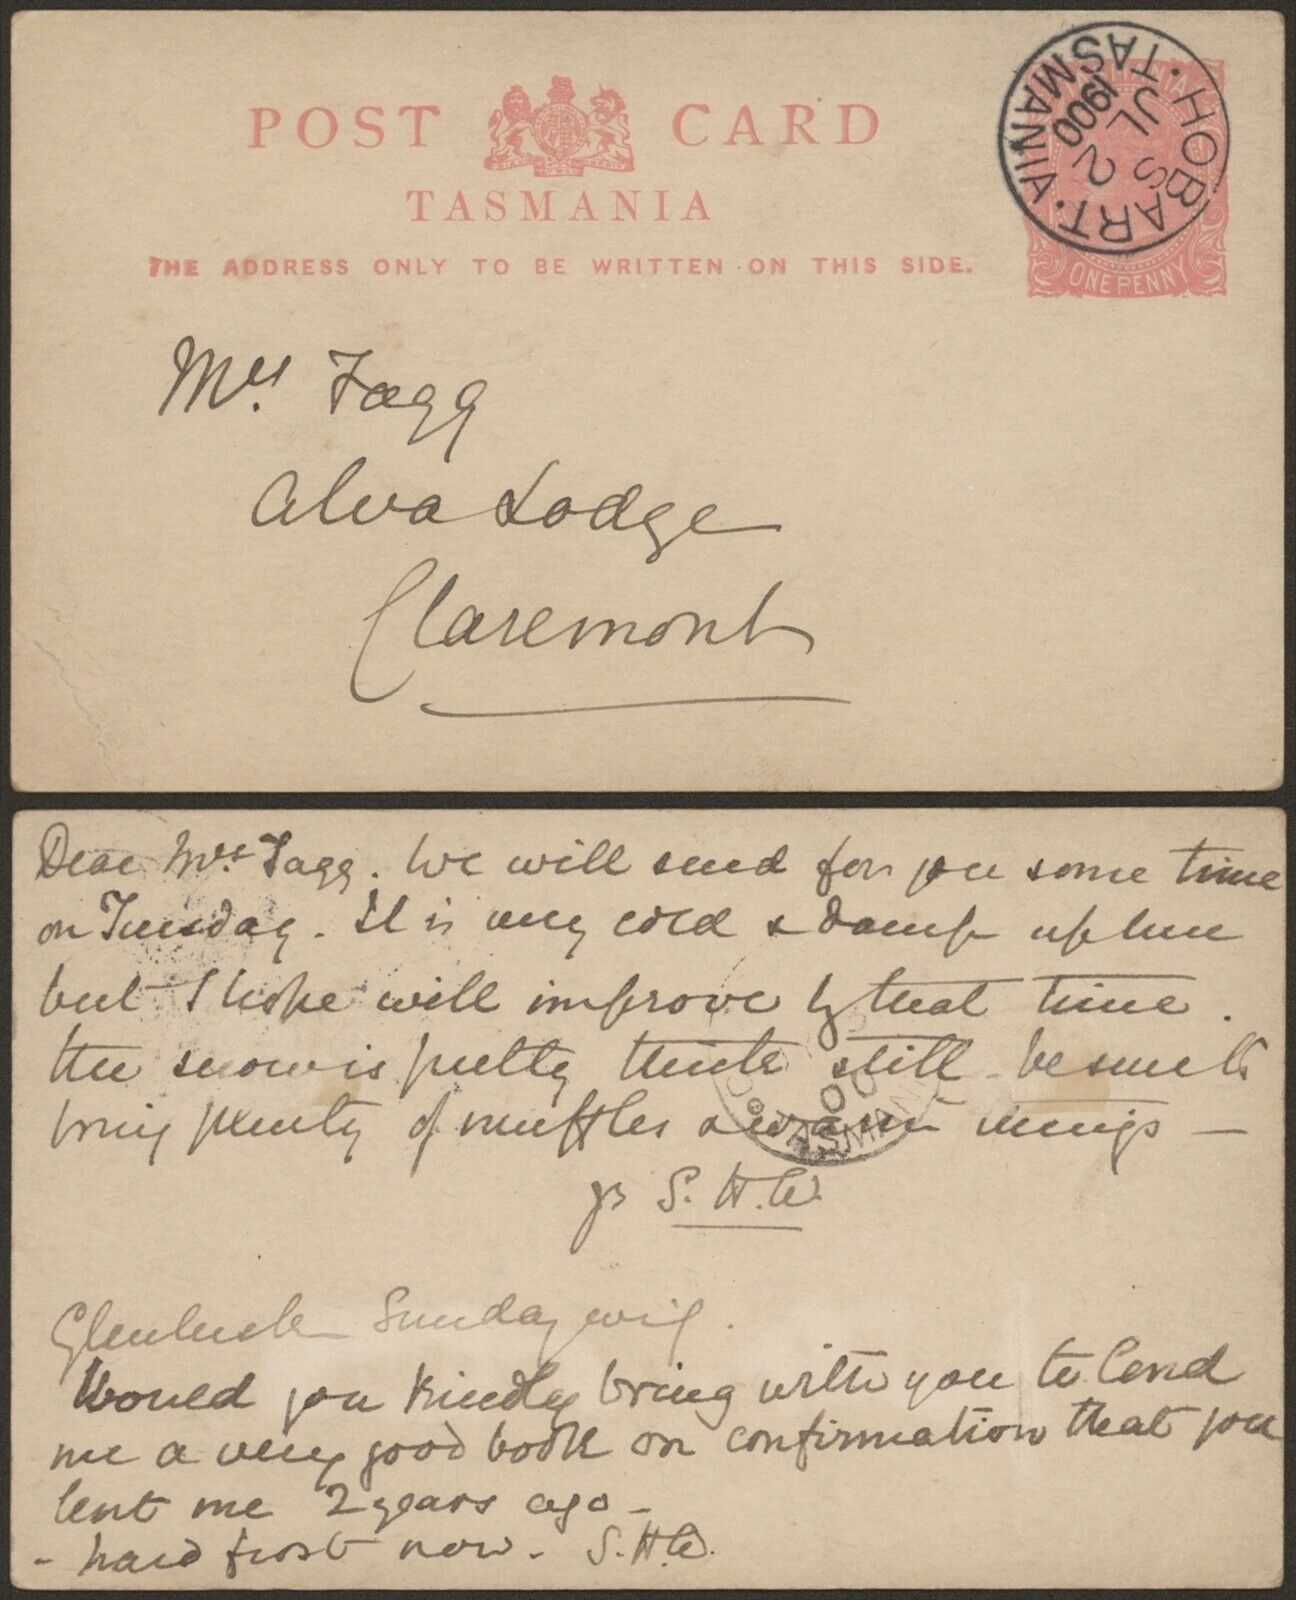 POST CARD
TASMANIA
THE ADDRESS ONLY TO BE WRITTEN ON THIS SIDE.
HOBART. TASMANIA.
S
JL 2
1900
ONE PENNY
Mrs. Fagg
Alva Lodge
Claremont
Dear Mrs. Fagg. We will send for you some time
on Tuesday. It is very cold & damp up here
but I hope will improve by that time.
the snow is pretty thick still be sure &
bring plenty of muffles & warm things —
yrs S.H.W.
00
TASMANIA
Sunday
Would you kindly bring with you to lend
me a very good book on confirmation that you
lent me 2 years ago -
- hard frost now. S.H.W.